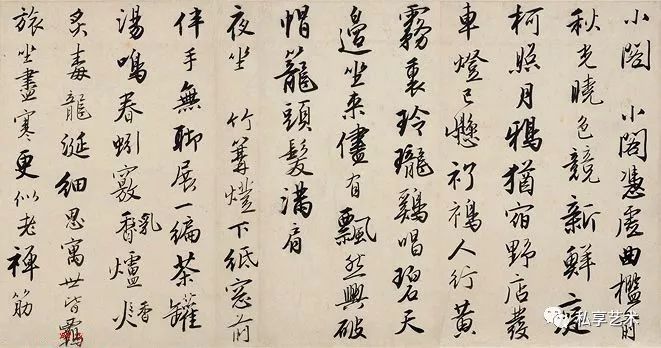 小閣 小閣憑虛曲檻前
秋光曉色競新鮮庭
柯照月鴉猶宿野店發
車燈已懸人行黃
霧裏玲瓏鷄唱碧天
邊坐來儘有飄然興破
帽籠頭髮滿肩
夜坐 竹篝燈下紙窓前
伴手無聊展一編茶罐
湯鳴春蚓竅乳香爐火香
炙毒龍涎細思寓世皆羈
旅坐盡寒更似老禪筋
私享艺术